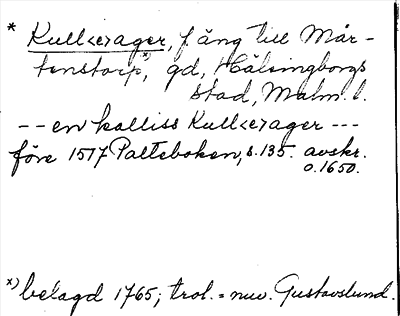 * Kull<e>ager, fång till Mår-
tenstorp x), gd, Hälsingborgs
stad, Malm. l.
-- en kalliss Kull<e>ager ---
före 1517 Palteboken, s. 135. avskr.
o. 1650.
x) belagd 1765; trol. = nuv. Gustavslund.